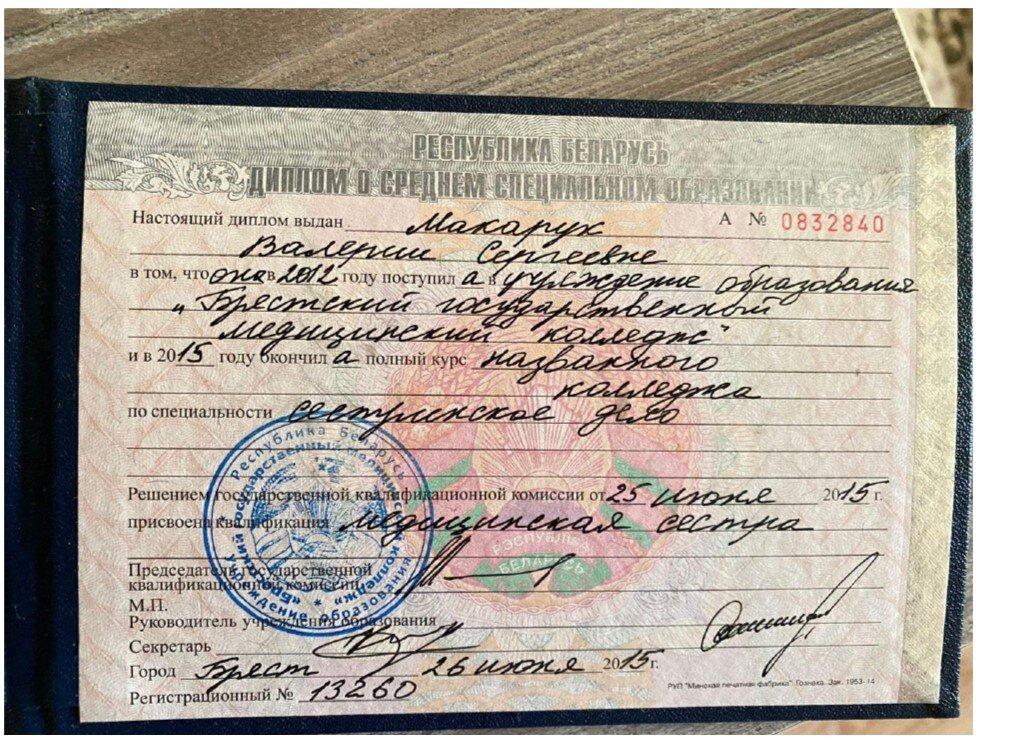 РЕСПУБЛИКА БЕЛАРУСЬ
ДИПЛОМ О СРЕДНЕМ СПЕЦИАЛЬНОМ ОБРАЗОВАНИИ
Настоящий диплом выдан Макарук А № 0832840
Валерии Сергеевне
в том, что она в 2012 году поступила в учреждение образования
"Брестский государственный
медицинский колледж"
и в 2015 году окончила полный курс названного
колледжа
по специальности сестринское дело
Решением государственной квалификационной комиссии от 25 июня 2015 г.
присвоена квалификация медицинская сестра
РЭСПУБЛІКА
БЕЛАРУСЬ
Председатель государственной
квалификационной комиссии
М.П.
Руководитель учреждения образования
Секретарь
Город Брест 26 июня 2015 г.
Регистрационный № 13260
РУП "Минская печатная фабрика" Гознака. Зак. 1953-14
Республика Беларусь
Учреждение образования
«Брестский государственный медицинский колледж»